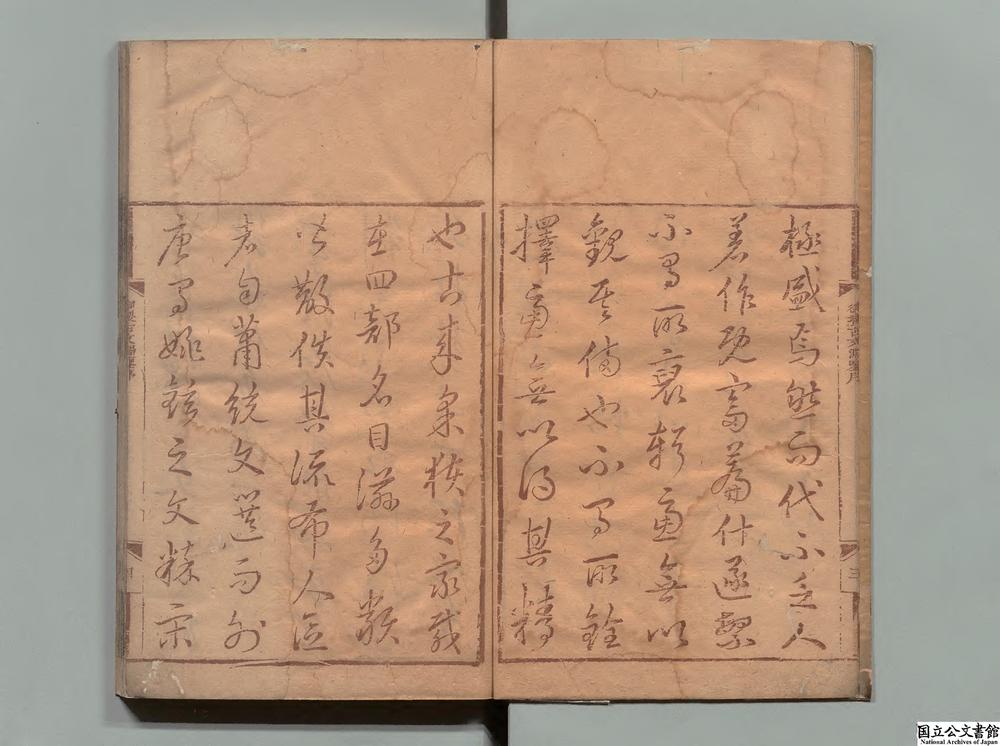 極盛焉然而代不乏人
著作既富篇什遂繁
不有所裒輯慮無以
觀其備也不有所銓
擇慮無以得其精
也古來采摭之家載
在四部名目滋多類
皆散佚其流布人間
者自蕭統文選而外
唐有姚鉉之文粹宋
国立公文書館
National Archives of Japan